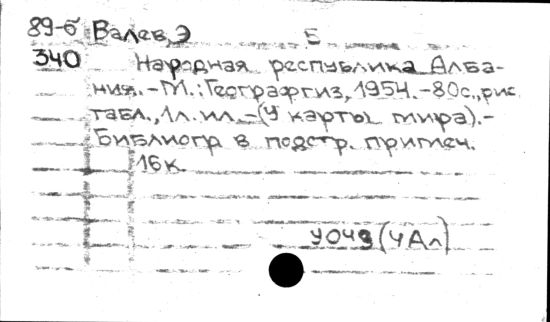 89-б Валев, Э Б
340 Народная республика Алба-
ния.-М.:Географгиз, 1954.-80с., рис.
табл., 1л. ил.-(У карты мира).-
Библиогр в подстр. примеч.
16к.
У049 (4Ал)